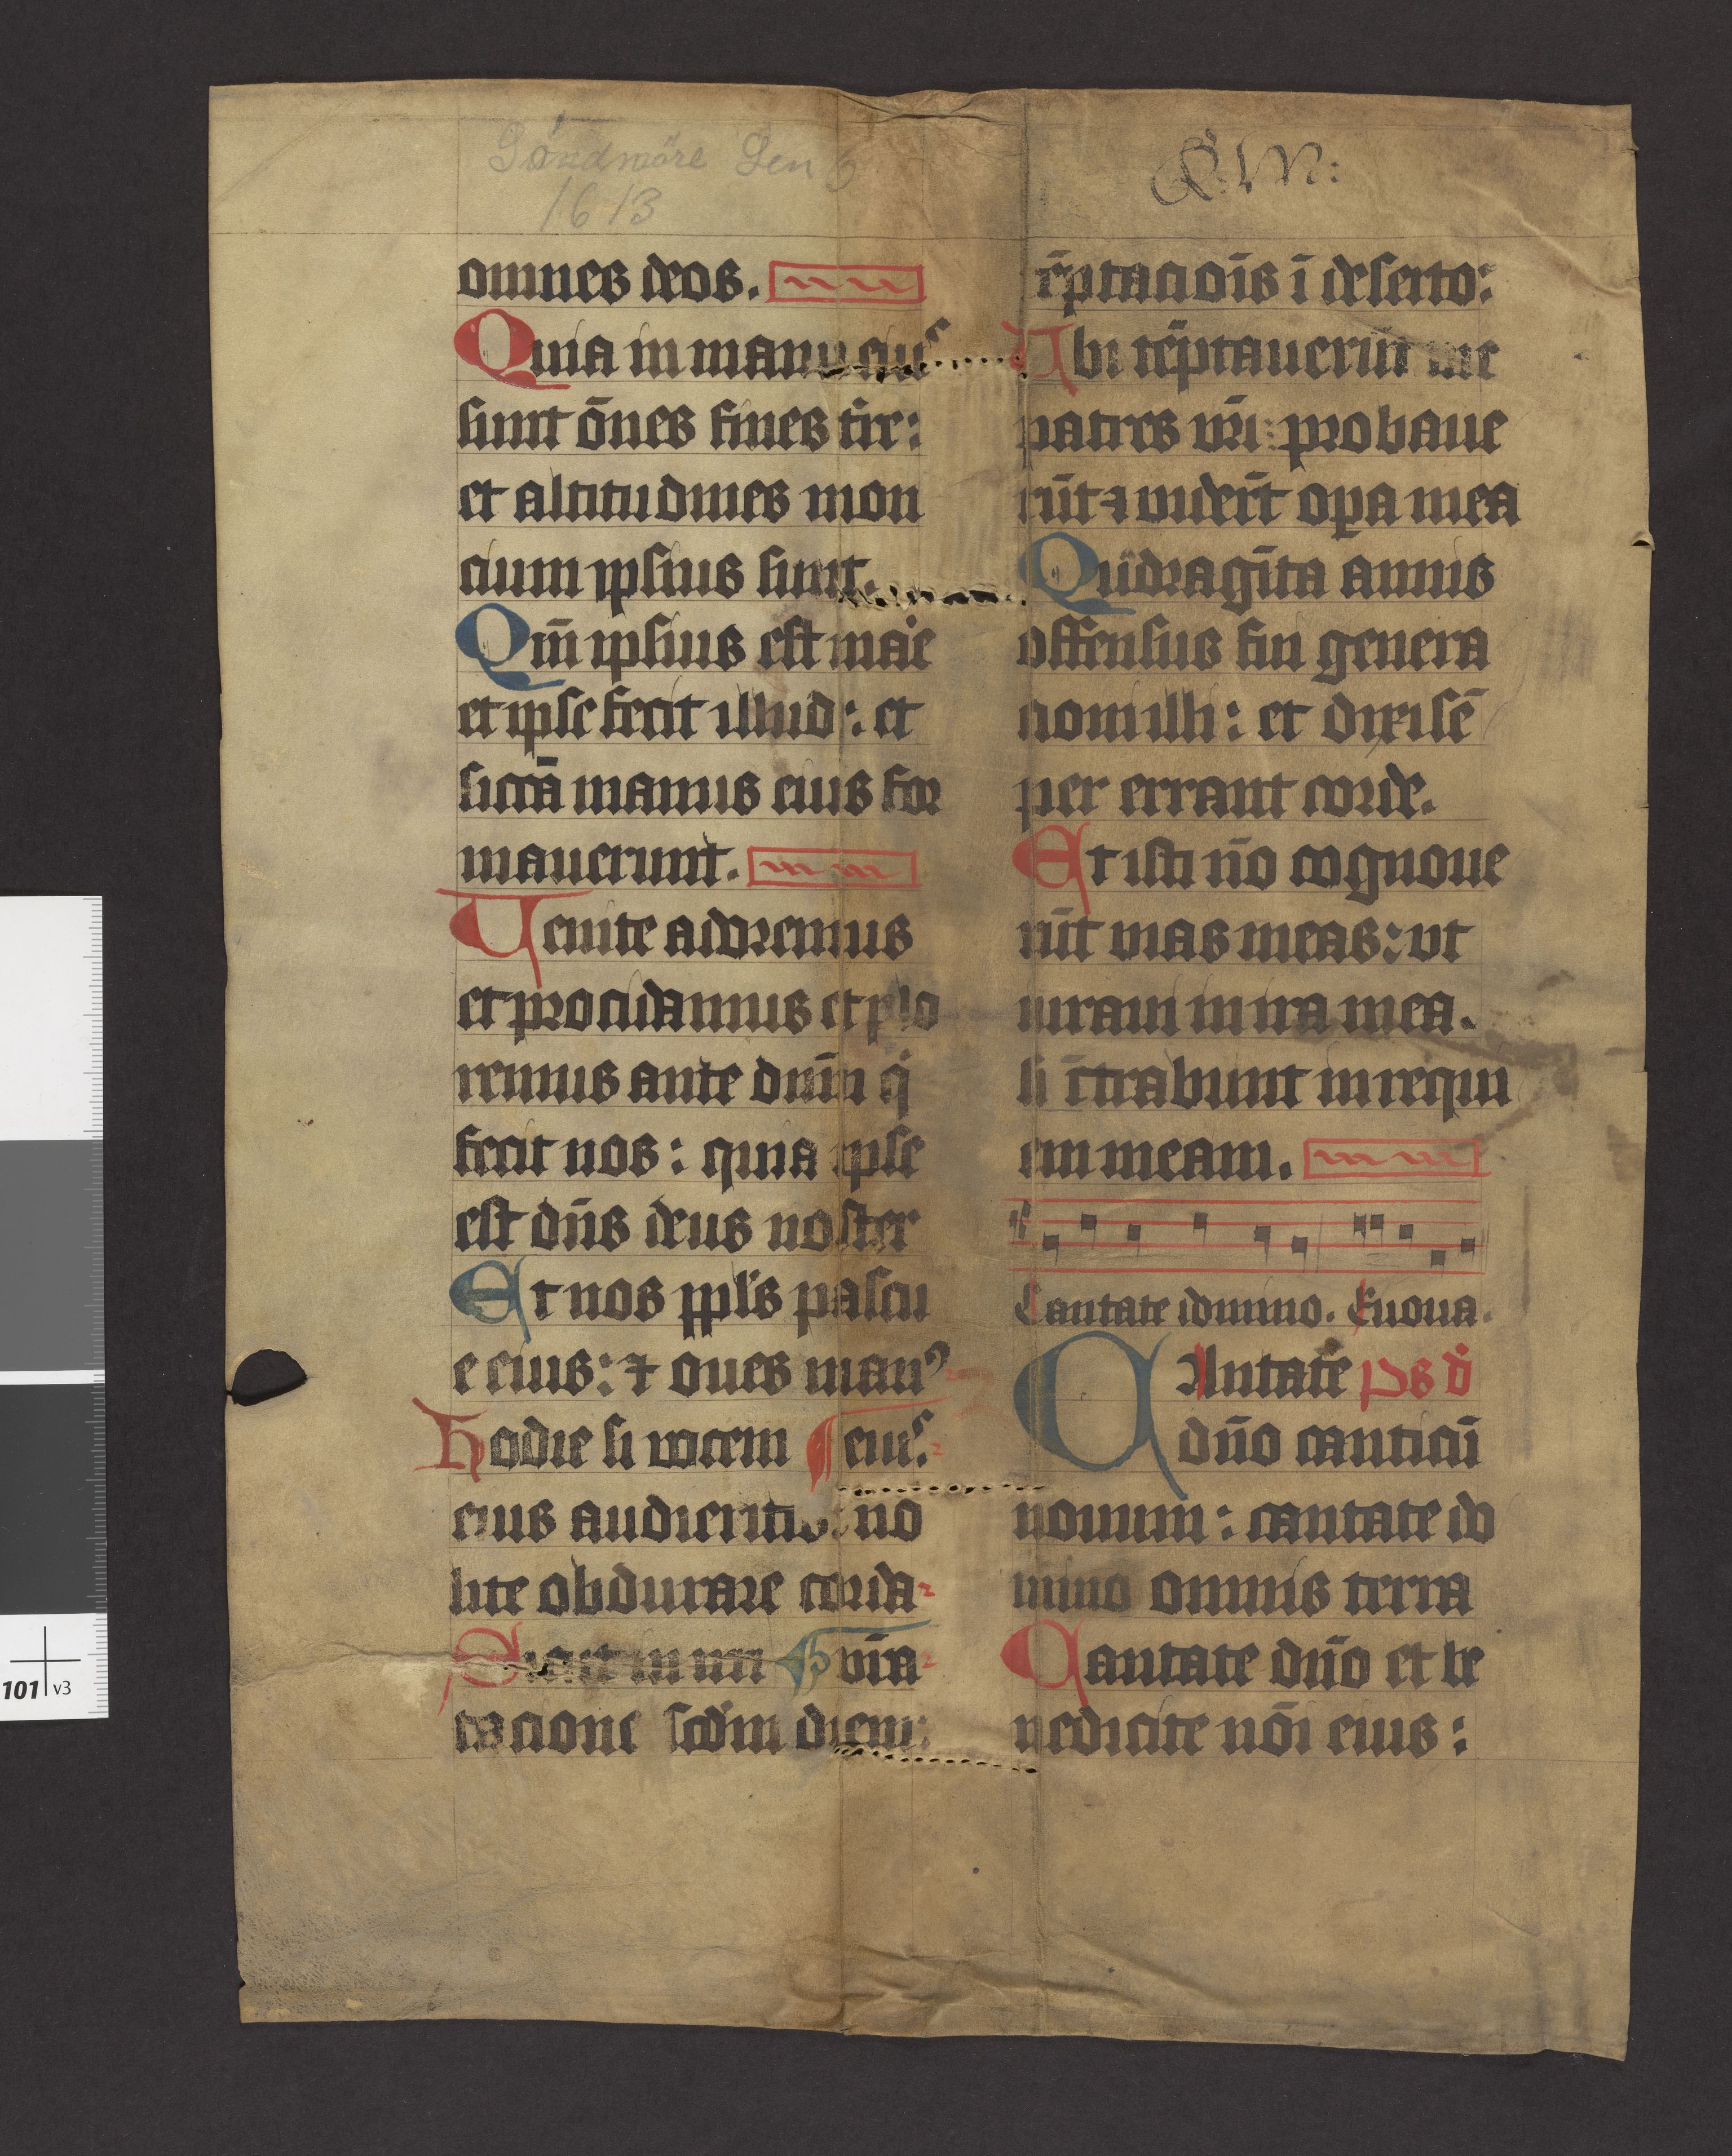 Söndmöre Len
1613
omnes deos.
Quia in manu eius
sunt ōnes fines tr̄e:
et altitudines mon
cium ipsius sunt.
Qm̄ ipsius est mare
et ipse fecit illud: et
siccā manus eius for
mauerunt.
Uenite adoremus
et procidamus et plo
remus ante dnm̄ q
fecit nos: quia ipse
est dn̄s deus noster
Et nos ppl's pascu
e eius: ⁊ oues man9
Hodie si vocem ¶ eius.
eius audieritis: no
lite obdurare corda
Sicut in irri vīa
tacione scdm diem:
R: W:
tēptaciōīs ī deserto:
Ubi tēptauerūt me
patres vr̄i: probaue
rūt ⁊ viderūt opa mea
Quadragīta annis
offensus fui genera
cioni illi: et dixi sē
per errant corde.
Et isti nō cognoue
rūt vias meas: vt
iuraui in ira mea.
si ītrabunt in requi
em meam.
Cantate domino. Euoua.
CAntate ps d
dn̄o canticū
nouum: cantate do
mino omnis terra
Cantate dn̄o et be
nedicite nōi eius: